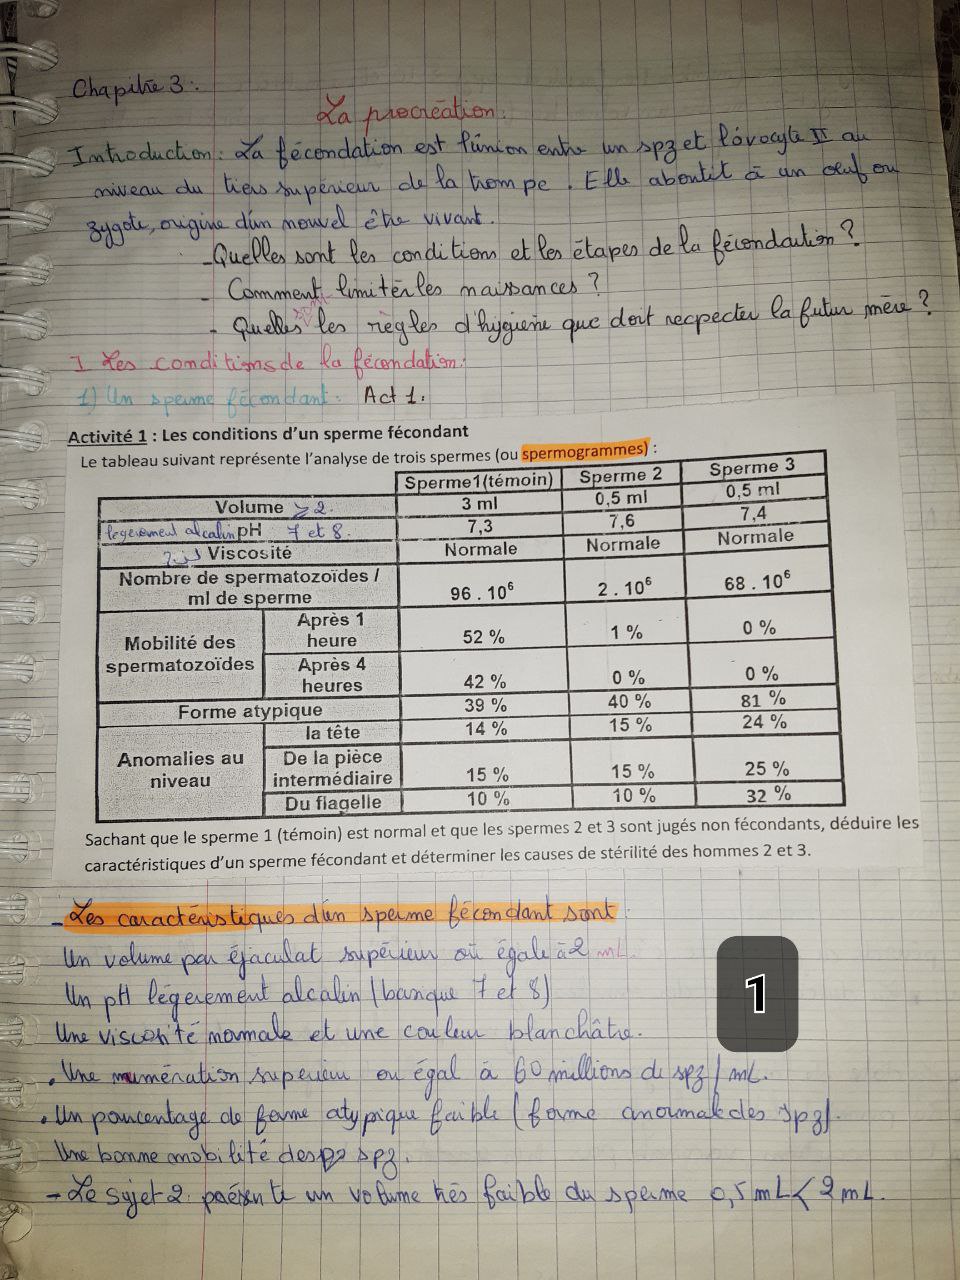 Chapitre 3 :
La procréation.
Introduction : La fécondation est l'union entre un spz et l'ovocyte II au
niveau du tiers supérieur de la trompe. Elle aboutit à un œuf ou
zygote, origine d'un nouvel être vivant.
- Quelles sont les conditions et les étapes de la fécondation ?
- Comment limiter les naissances ?
- Quelles les règles d'hygiene que doit recpecter la futur mère ?
I Les conditions de la fécondation :
1) Un sperme fécondant : Act 1.
Activité 1 : Les conditions d'un sperme fécondant
Le tableau suivant représente l'analyse de trois spermes (ou spermogrammes) :
Sperme1(témoin) Sperme 2 Sperme 3
Volume ≥ 2 3 ml 0,5 ml 0,5 ml
legerement alcalin pH 7 et 8. 7,3 7,6 7,4
Viscosité Normale Normale Normale
Nombre de spermatozoïdes /
ml de sperme 96 . 10⁶ 2 . 10⁶ 68 . 10⁶
Mobilité des
spermatozoïdes
Après 1
heure 52 % 1 % 0 %
Après 4
heures 42 % 0 % 0 %
Forme atypique 39 % 40 % 81 %
Anomalies au
niveau
la tête 14 % 15 % 24 %
De la pièce
intermédiaire 15 % 15 % 25 %
Du flagelle 10 % 10 % 32 %
Sachant que le sperme 1 (témoin) est normal et que les spermes 2 et 3 sont jugés non fécondants, déduire les
caractéristiques d'un sperme fécondant et déterminer les causes de stérilité des hommes 2 et 3.
- Les caractéristiques d'un sperme fécondant sont :
Un volume par éjaculat supérieur où égale à 2 mL.
Un pH légerement alcalin (basique 7 et 8)
Une viscosité normale et une couleur blanchâtre.
. Une numération superieur ou égal à 60 millions de spz / mL.
. Un pourcentage de forme atypique faible (forme anormale des spz).
Une bonne mobilité des spz.
- Le sujet 2 : présente un volume très faible du sperme 0,5 mL < 2 mL.
1